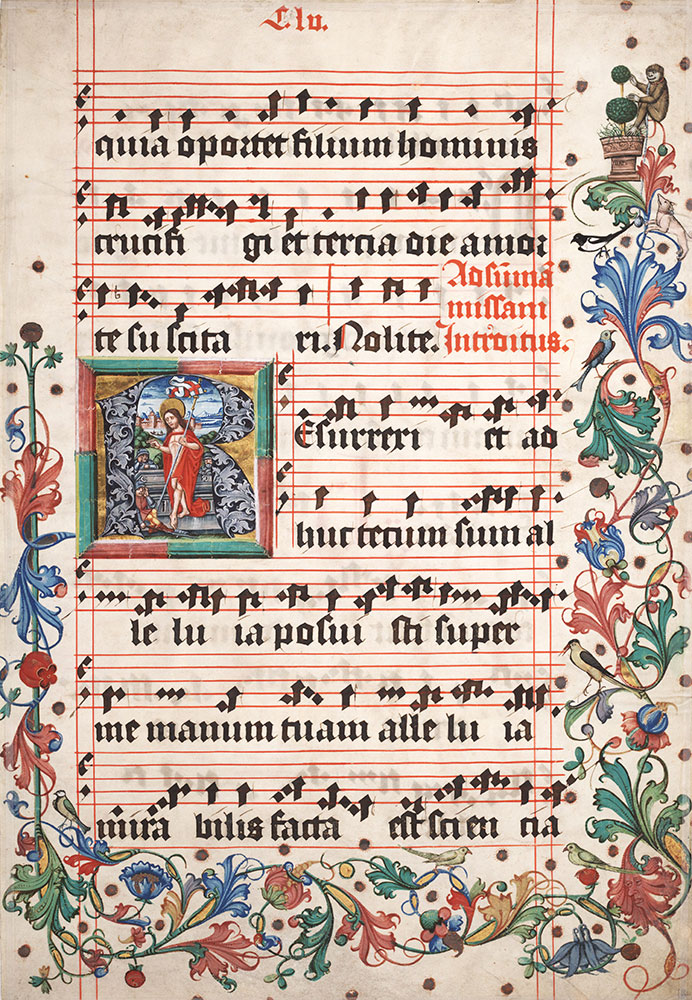 C. lv.
quia oportet filium hominis
crucifi gi et tercia die a mor
te su scita ri. Nolite. Ad sum̄ā
missam
Introitus.
Resurrexi et ad
huc tecum sum al
le lu ia posui sti super
me manum tuam alle lu ia
mira bilis facta est scien cia